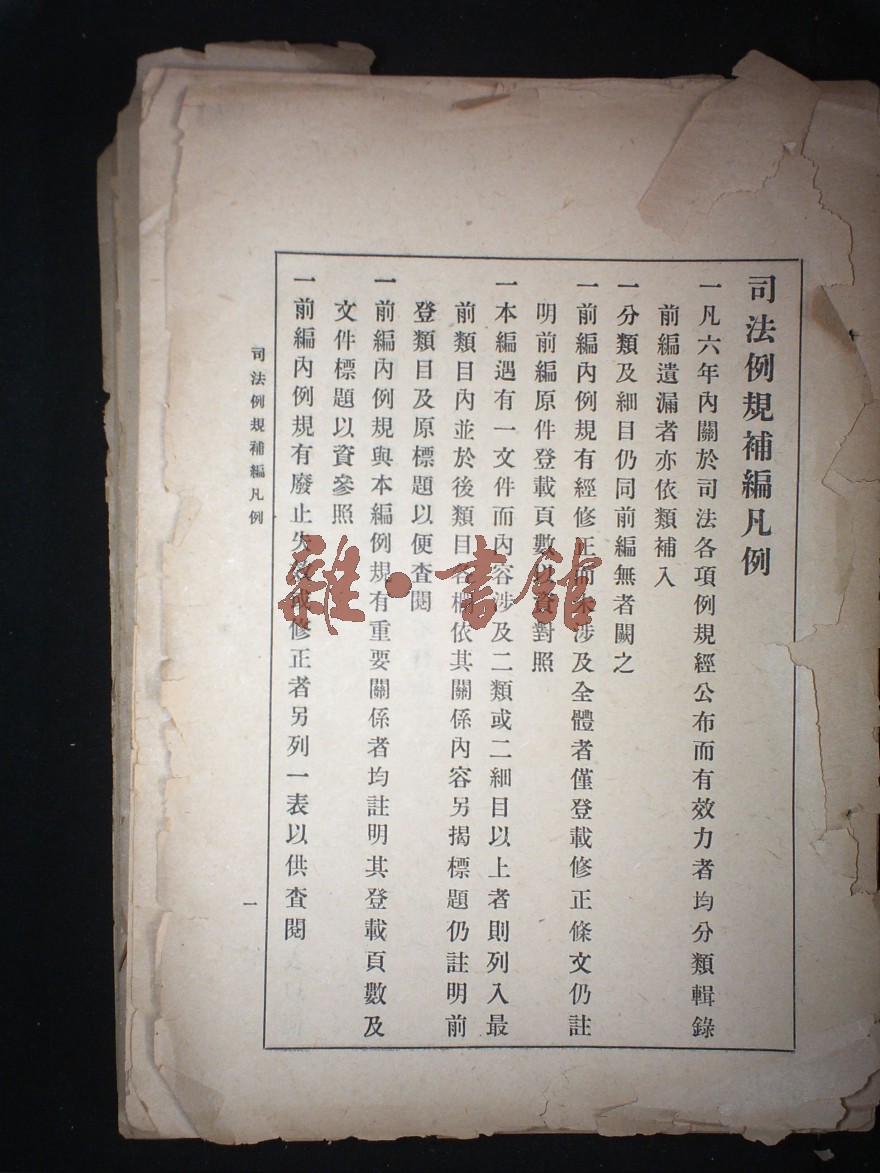 司法例規補編凡例
一凡六年內關於司法各項例規經公布而有效力者均分類輯錄
前編遺漏者亦依類補入
一分類及細目仍同前編無者闕之
一前編內例規有經修正而未涉及全體者僅登載修正條文仍註
明前編原件登載頁數以資對照
一本編遇有一文件而內容涉及二類或二細目以上者則列入最
前類目內並於後類目各欄依其關係內容另揭標題仍註明前
登類目及原標題以便查閱
一前編內例規與本編例規有重要關係者均註明其登載頁數及
文件標題以資參照
一前編內例規有廢止失效或修正者另列一表以供查閱
司法例規補編凡例
一
雜·書館